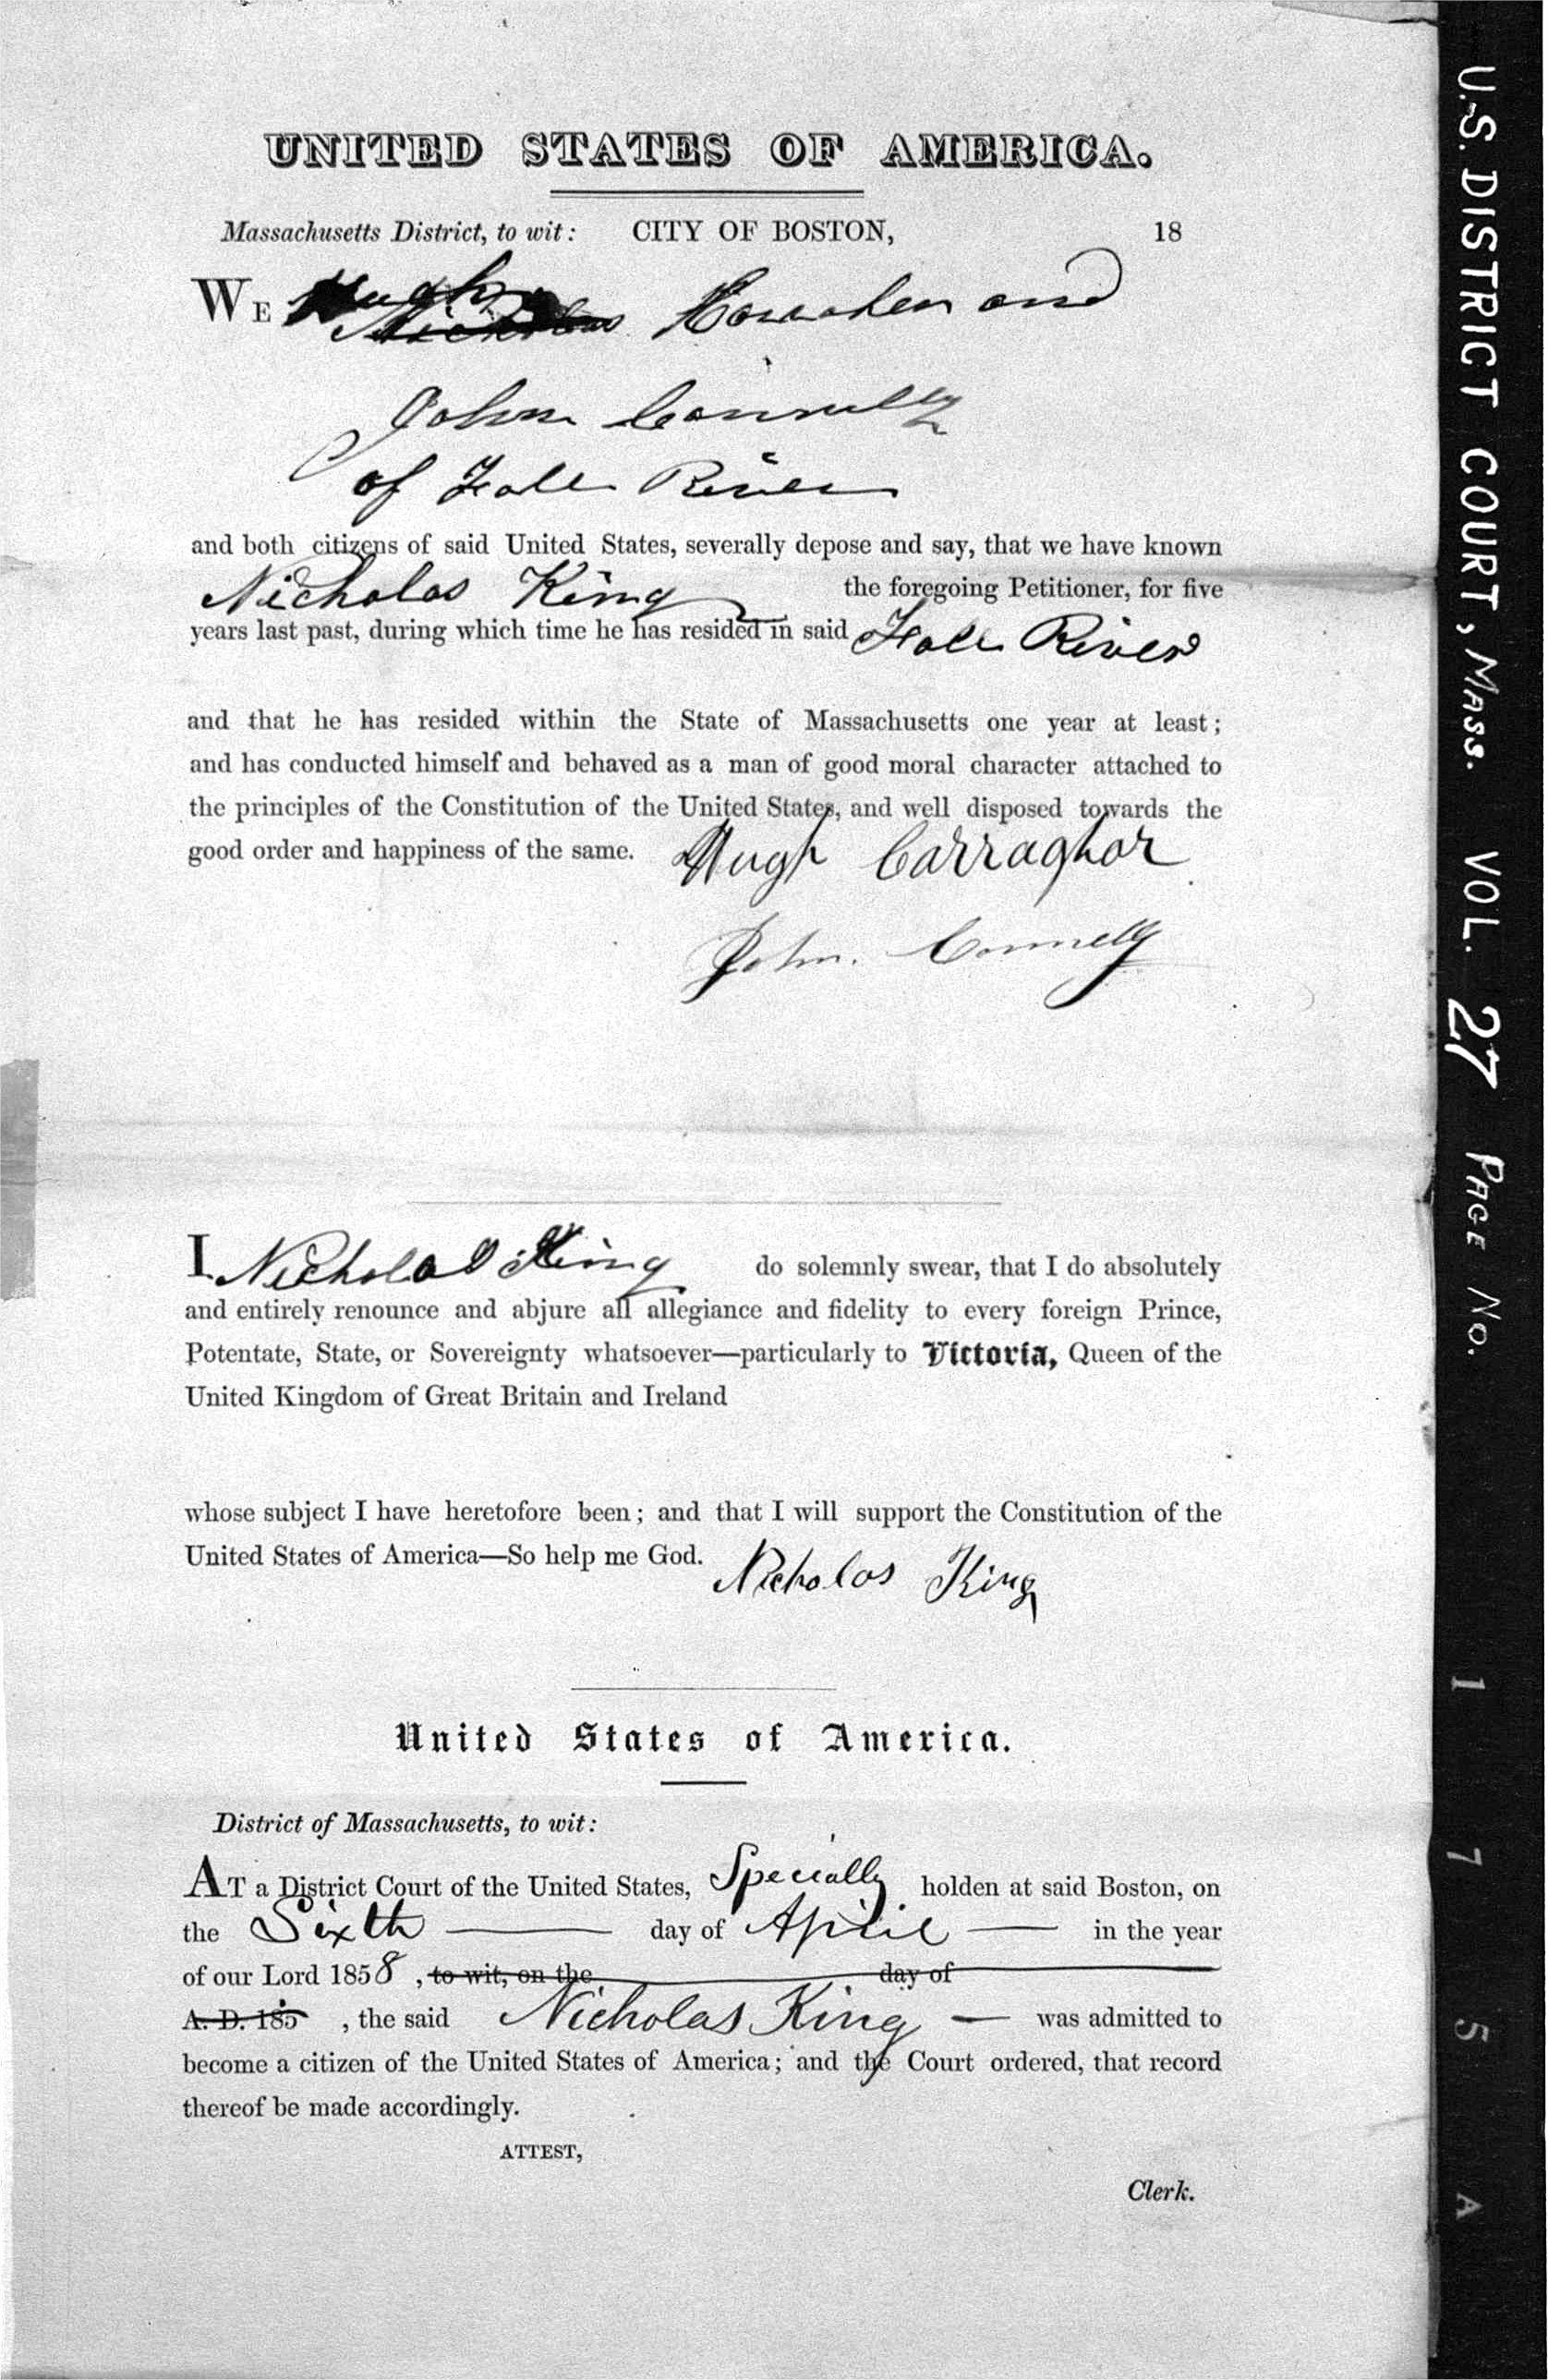 UNITED STATES OF AMERICA.
Massachusetts District, to wit: CITY OF BOSTON, 18
WE Hugh and
John Connelly
of Fall River
and both citizens of said United States, severally depose and say, that we have known
Nicholas King the foregoing Petitioner, for five
years last past, during which time he has resided in said Fall River
and that he has resided within the State of Massachusetts one year at least;
and has conducted himself and behaved as a man of good moral character attached to
the principles of the Constitution of the United States, and well disposed towards the
good order and happiness of the same. Hugh Carraghar
John. Connelly
I Nicholas King do solemnly swear, that I do absolutely
and entirely renounce and abjure all allegiance and fidelity to every foreign Prince,
Potentate, State, or Sovereignty whatsoever—particularly to Victoria, Queen of the
United Kingdom of Great Britain and Ireland
whose subject I have heretofore been; and that I will support the Constitution of the
United States of America—So help me God. Nicholas King
United States of America.
District of Massachusetts, to wit:
AT a District Court of the United States, Specially holden at said Boston, on
the Sixth day of April in the year
of our Lord 1858, to wit, on the day of
A. D. 185 , the said Nicholas King was admitted to
become a citizen of the United States of America; and the Court ordered, that record
thereof be made accordingly.
ATTEST,
Clerk.
U.S. DISTRICT COURT, MASS. VOL. 27 PAGE NO.
1 7 5 A